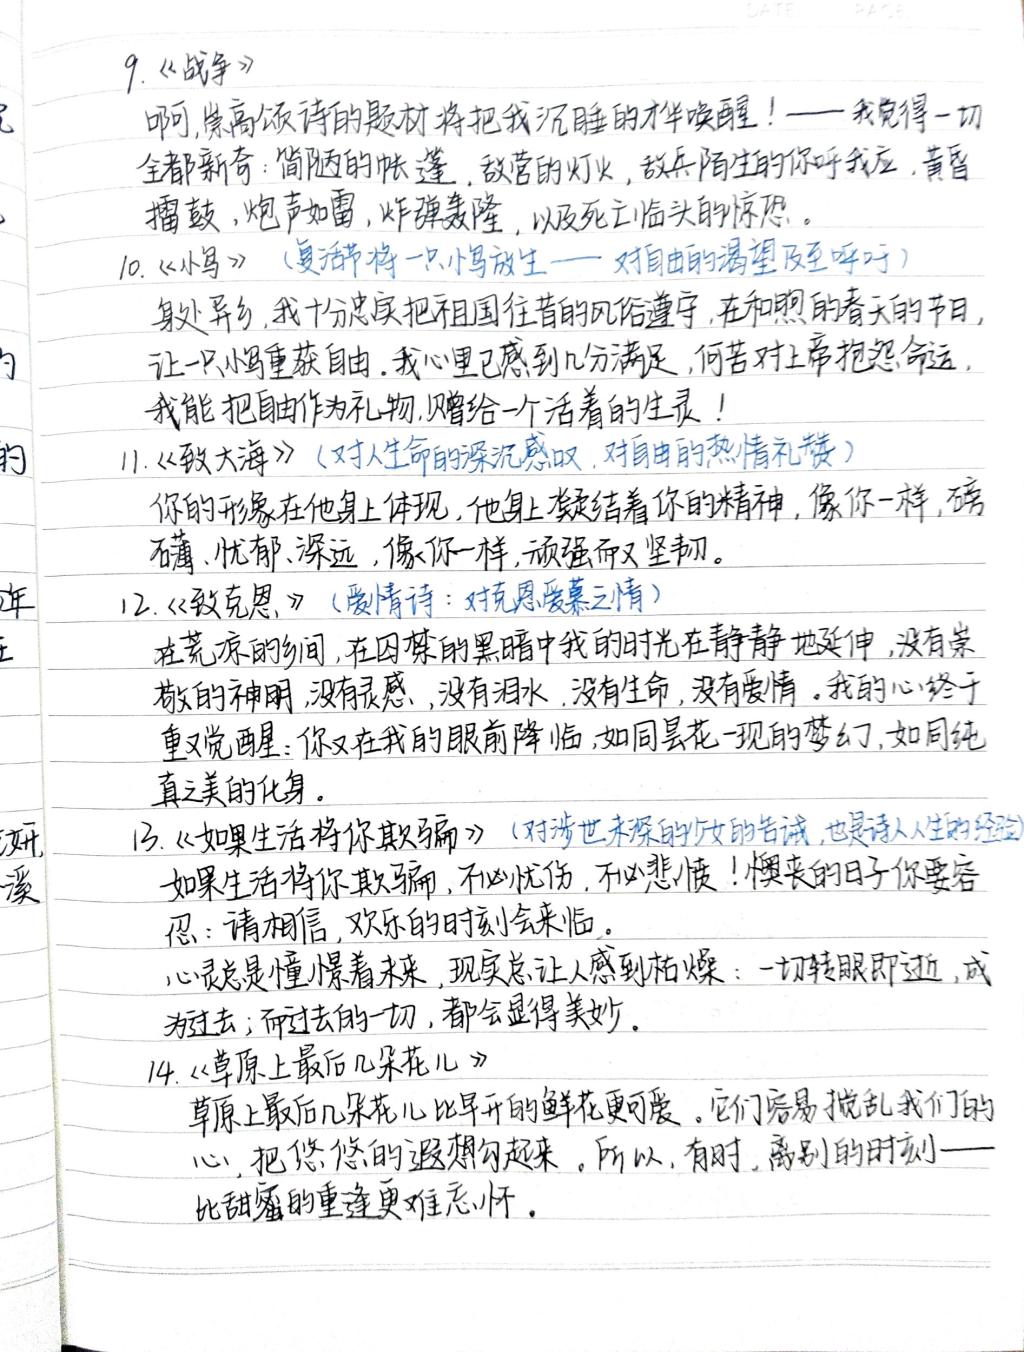 DATE PAGE
9.《战争》
啊,崇高颂诗的题材将把我沉睡的才华唤醒！——我觉得一切
全都新奇：简陋的帐蓬，敌营的灯火，敌兵陌生的你呼我应，黄昏
擂鼓，炮声如雷，炸弹轰隆，以及死亡临头的惊恐。
10.《小鸟》（复活节将一只小鸟放生——对自由的渴望及至呼吁）
身处异乡,我十分忠实把祖国往昔的风俗遵守,在和煦的春天的节日,
让一只小鸟重获自由.我心里已感到几分满足,何苦对上帝抱怨命运,
我能把自由作为礼物,赠给一个活着的生灵！
11.《致大海》（对人生命的深沉感叹,对自由的热情礼赞）
你的形象在他身上体现,他身上凝结着你的精神,像你一样,磅
礴、忧郁、深远,像你一样,顽强而又坚韧。
12.《致克恩》（爱情诗：对克恩爱慕之情）
在荒凉的乡间,在囚禁的黑暗中我的时光在静静地延伸,没有崇
敬的神明,没有灵感,没有泪水,没有生命,没有爱情。我的心终于
重又觉醒：你又在我的眼前降临,如同昙花一现的梦幻,如同纯
真之美的化身。
13.《如果生活将你欺骗》（对涉世未深的少女的告诫,也是诗人人生的经验）
如果生活将你欺骗,不必忧伤,不必悲愤！懊丧的日子你要容
忍：请相信,欢乐的时刻会来临。
心灵总是憧憬着未来,现实总让人感到枯燥：一切转眼即逝,成
为过去；而过去的一切,都会显得美妙。
14.《草原上最后几朵花儿》
草原上最后几朵花儿比早开的鲜花更可爱。它们容易搅乱我们的
心,把悠悠的遐想勾起来。所以,有时,离别的时刻——
比甜蜜的重逢更难忘怀。
的
年
妍
溪